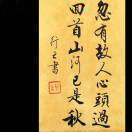 忽有故人心頭過
回首山河已是秋
行之書